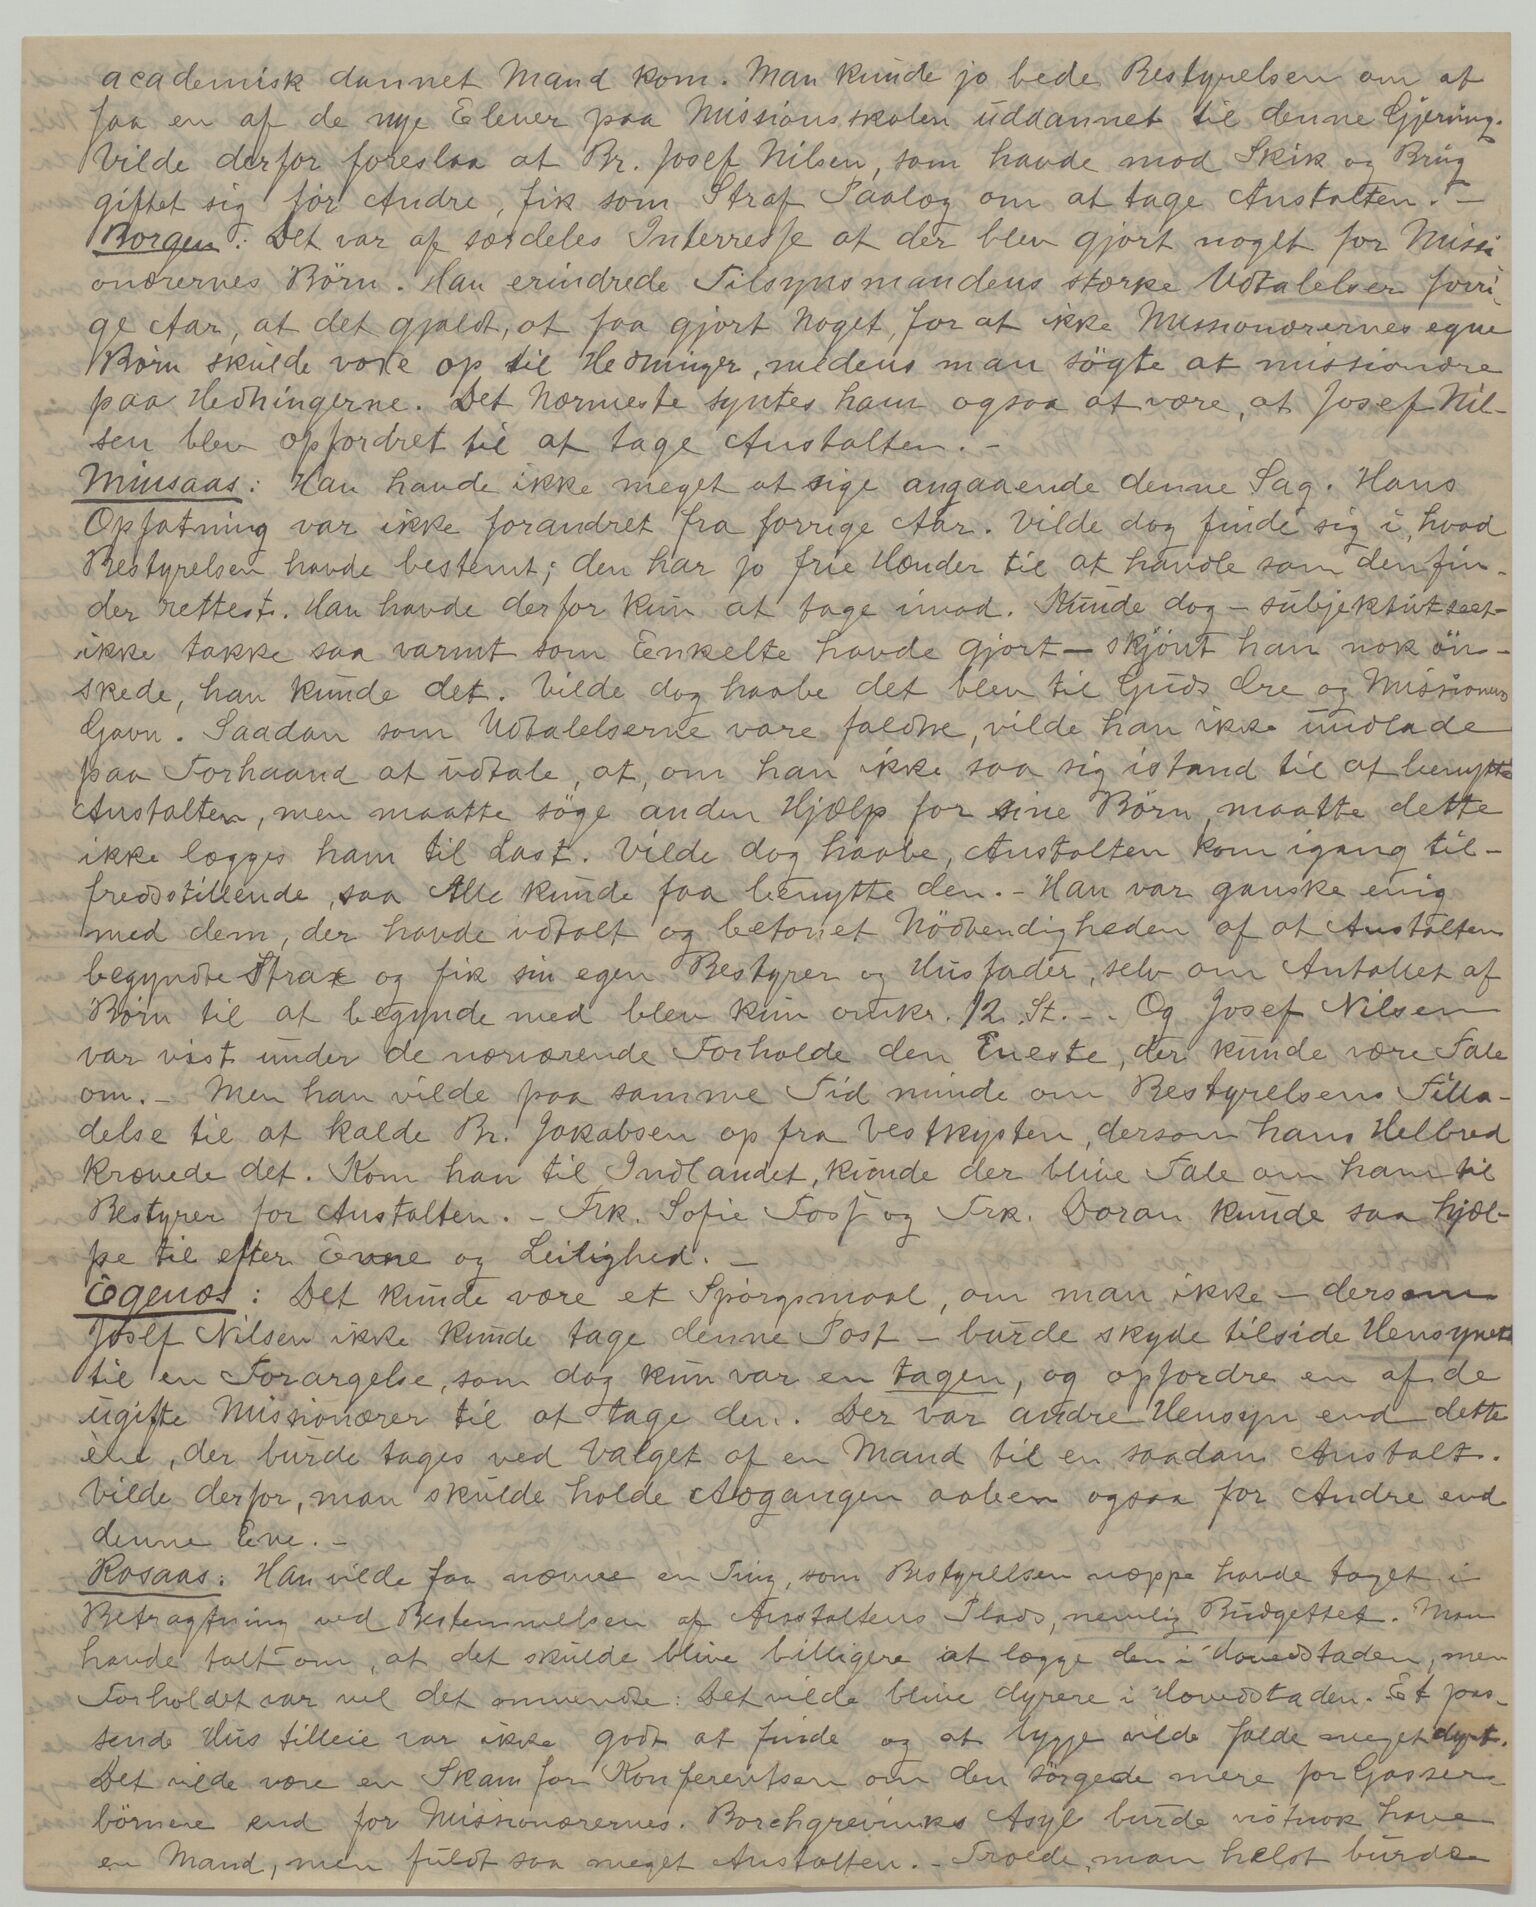 academisk dannet Mand kom. Man kunde jo bede Bestyrelsen om at
faa en af de nye Elever paa Missionsskolen uddannet til denne Gjerning.
Vilde derfor foreslaa at Br. Josef Nilsen, som havde mod Skik og Brug
giftet sig før Andre, fik som Straf Paalæg om at tage Anstalten. –
Borgen: Det var af særdeles Interresse at der blev gjort noget for Missi
onærernes Børn. Han erindrede Tilsynsmandens stærke Udtalelser forri-
ge Aar, at det gjaldt, at faa gjort Noget, for at ikke Missionærernes egne
Børn skulde voxe op til Hedninger, medens man søgte at missionære
paa Hedningerne. Det Nærmeste syntes ham ogsaa at være, at Josef Nil-
sen blev opfordret til at tage Anstalten. –
Minsaas: Han havde ikke meget at sige angaaende denne Sag. Hans
Opfatning var ikke forandret fra forrige Aar. Vilde dog finde sig i, hvad
Bestyrelsen havde bestemt; den har jo frie Hænder til at handle som den fin-
der rettest. Han havde derfor kun at tage imod. Kunde dog – subjektivt seet –
ikke takke saa varmt som Enkelte havde gjort – skjønt han nok øn-
skede, han kunde det. Vilde dog haabe det blev til Guds Ære og Missionens
Gavn. Saadan som Udtalelserne vare faldne, vilde han ikke undlade
paa Forhaand at udtale, at, om han ikke saa sig istand til at benytte
Anstalten, men maatte søge anden Hjælp for sine Børn, maatte dette
ikke lægges ham til Last. Vilde dog haabe, Anstalten kom igang til-
fredsstillende, saa Alle kunde faa benytte den. – Han var ganske enig
med dem, der havde udtalt og betonet Nødvendigheden af at Anstalten
begyndte Strax og fik sin egen Bestyrer og Husfader, selv om Antallet af
Børn til at begynde med blev kun omkr. 12 St. – Og Josef Nilsen
var vist under de nærværende Forholde den Eneste, der kunde være Tale
om. – Men han vilde paa samme Tid minde om Bestyrelsens Tilla-
delse til at kalde Br. Jakobsen op fra Vestkysten, dersom hans Helbred
krævede det. Kom han til Indlandet, kunde der blive Tale om ham til
Bestyrer for Anstalten. – Frk. Sofie og Frk. Doran kunde saa hjæl-
pe til efter Evne og Leilighed. –
Egenæs: Det kunde være et Spørgsmaal, om man ikke – dersom
Josef Nilsen ikke kunde tage denne Post – burde skyde tilside Hensynet
til en Forargelse, som dog kun var en tagen, og opfordre en af de
ugifte Missionærer til at tage den. Der var andre Hensyn end dette
ene, der burde tages ved Valget af en Mand til en saadan Anstalt.
Vilde derfor, man skulde holde Adgangen aaben ogsaa for Andre end
denne Ene. –
Rosaas: Han vilde faa nævne en Ting, som Bestyrelsen næppe havde taget i
Betragtning ved Bestemmelsen af Anstaltens Plads, nemlig Budgettet. Man
havde talt om, at det skulde blive billigere at lægge den i Hovedstaden, men
Forholdet var vel det omvendte: Det vilde blive dyrere i Hovedstaden. Et pas-
sende Hus tilleie var ikke godt at finde og at bygge vilde falde meget dyrt.
Det vilde være en Skam for Konferentsen om den sørgede mere for Gasser-
børnene end for Missionærernes. Borchgrevinks Asyl burde vistnok have
en Mand, men fuldt saa meget Anstalten. – Troede, man helst burde